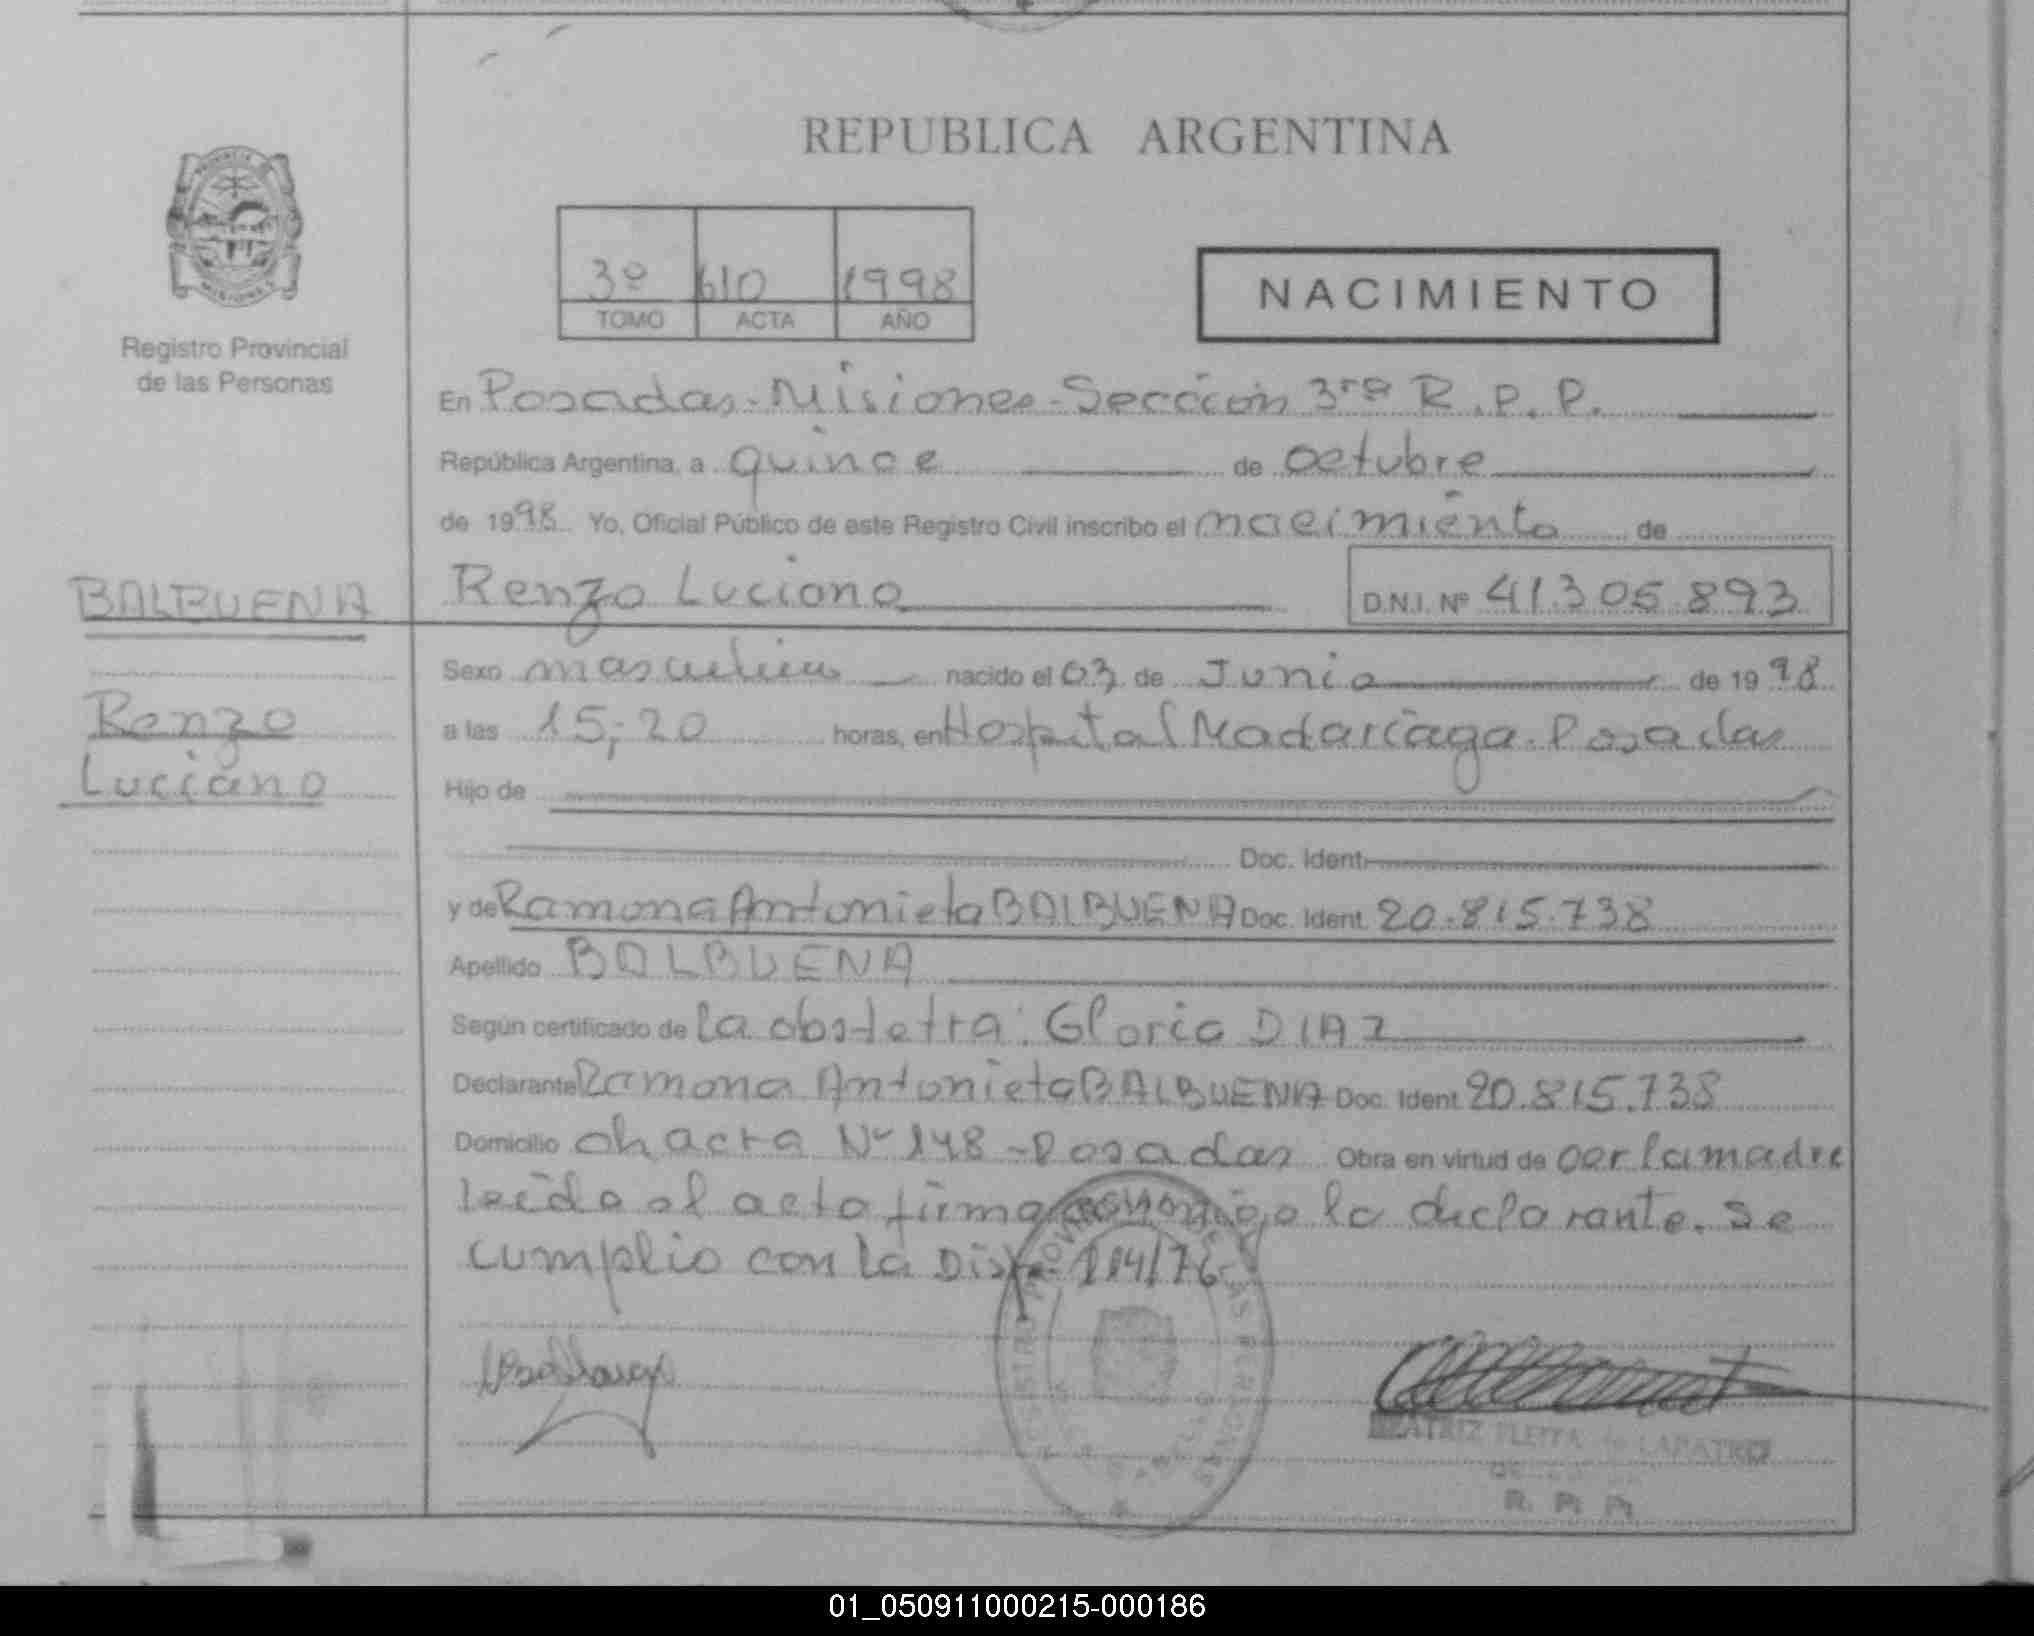 REPUBLICA ARGENTINA
3º 610 1998
TOMO ACTA AÑO
NACIMIENTO
Registro Provincial
de las Personas
En Posadas - Misiones - Sección 3ra R.P.P.
República Argentina, a quince de octubre
de 1998 Yo, Oficial Público de este Registro Civil inscribo el nacimiento de
BALBUENA
Renzo Luciano
Renzo Luciano D.N.I. Nº 41.305.893
Sexo masculino nacido el 03 de Junio de 1998
a las 15,20 horas, en Hospital Madariaga. Posadas
Hijo de
Doc. Ident.
y de Ramona Antonieta BALBUENA Doc. Ident. 20.815.738
Apellido BALBUENA
Según certificado de la obstetra: Gloria DIAZ
Declarante Ramona Antonieta BALBUENA Doc. Ident. 20.815.738
Domicilio chacra Nº 148 - Posadas Obra en virtud de ser la madre
leído el acta firma conmigo la declarante. Se
cumplio con la Disp. 114/76-
BEATRIZ
R. P. P.
01_050911000215-000186